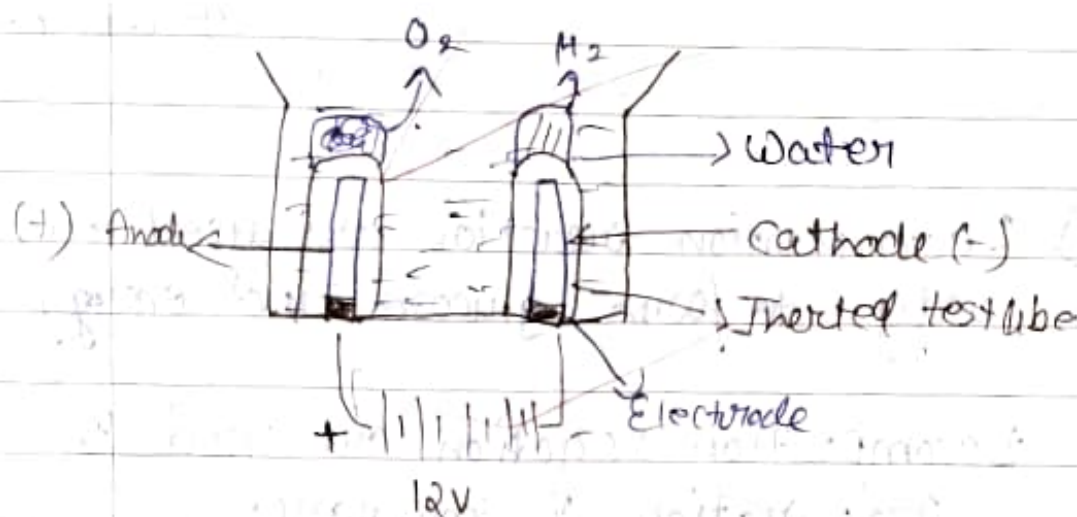 O2 H2
Water
(+) Anode
Cathode (-)
Inerted testtube
Electrode
+
12V